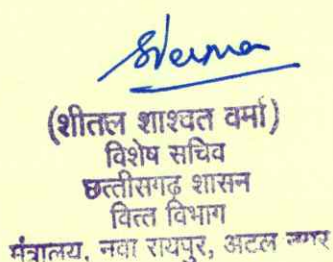 Sverma
(शीतल शाश्वत वर्मा)
विशेष सचिव
छत्तीसगढ़ शासन
वित्त विभाग
मंत्रालय, नवा रायपुर, अटल नगर